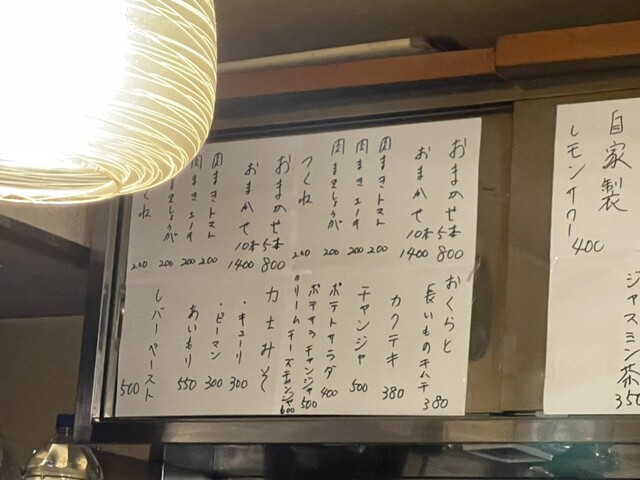 自家製
レモンサワー 400
ジャスミン茶 350
おまかせ 5本 800
おまかせ 10本 1400
肉まきトマト 200
肉まき 200
肉まきしょうが 200
つくね 200
おまかせ 5本 800
おまかせ 10本 1400
肉まきトマト 200
肉まき 200
しょうが 200
つくね 200
おくらと
長いものキムチ 380
カクテキ 380
チャンジャ 500
ポテトサラダ 400
ポテサラチャンジャ 500
クリームチーズチャンジャ 600
力士みそ
・キューリ 300
・ピーマン 300
あいもり 550
レバーペースト 500